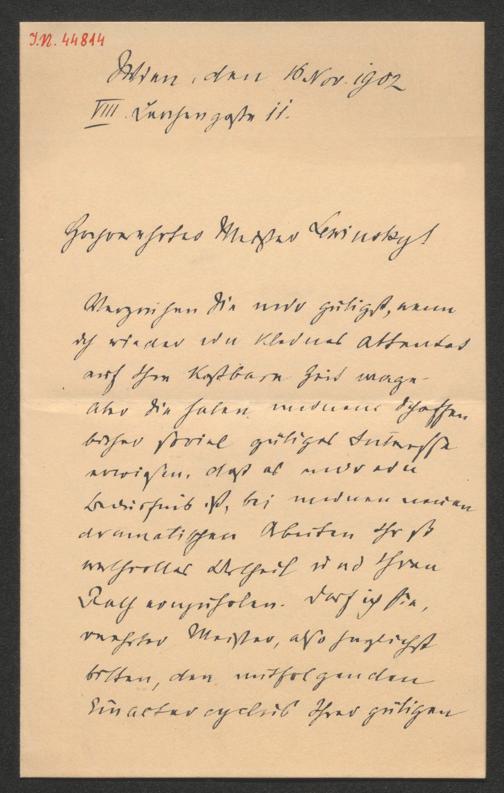 I.N. 44814
Wien, den 16 Nov. 1902
VIII. Lerchengasse 11.
Hochverehrter Meister Lewinsky!
Verzeihen Sie mir gütigst, wenn
ich wieder ein kleines Attentat
auf Ihre kostbare Zeit wage.
Aber Sie haben meinem Schaffen
bisher soviel gütiges Interesse
erwiesen, daß es mir ein
Bedürfnis ist, bei meinen neuen
dramatischen Arbeiten Ihr so
werthvolles Urtheil und Ihren
Rath einzuholen. Darf ich Sie,
verehrter Meister, also herzlichst
bitten, den mitfolgenden
Einactercyclus Ihrer gütigen